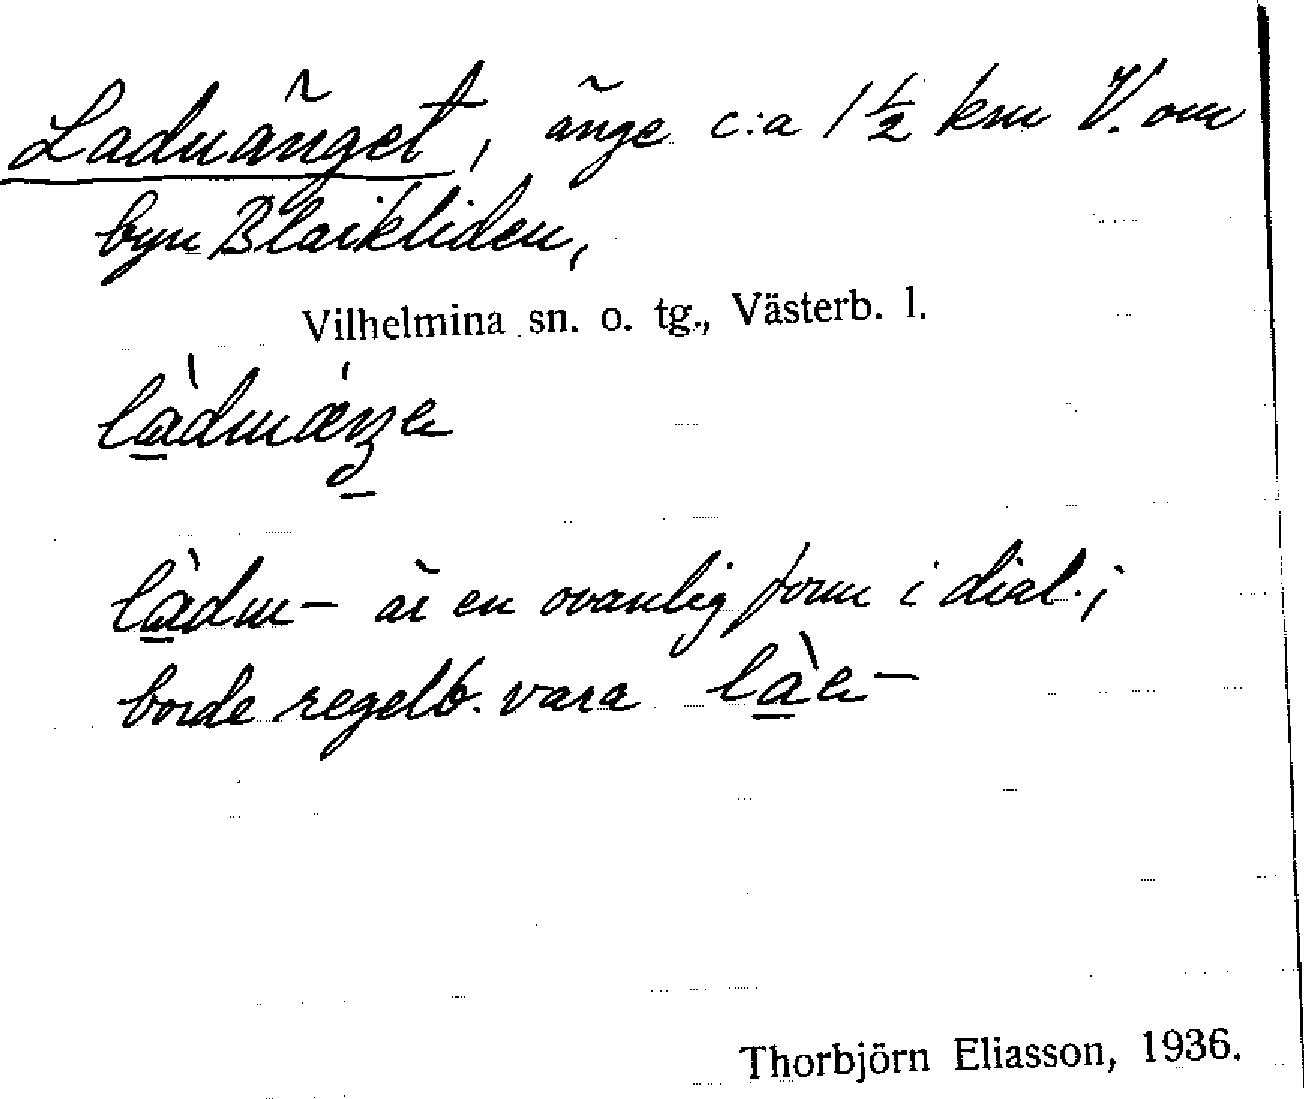 Laduänget, änge c:a 1½ km V. om
byn Blaikliden,
Vilhelmina sn. o. tg., Västerb. l.
làdu-
làdu- är en ovanlig form i dial.;
borde regelb. vara
Thorbjörn Eliasson, 1936.